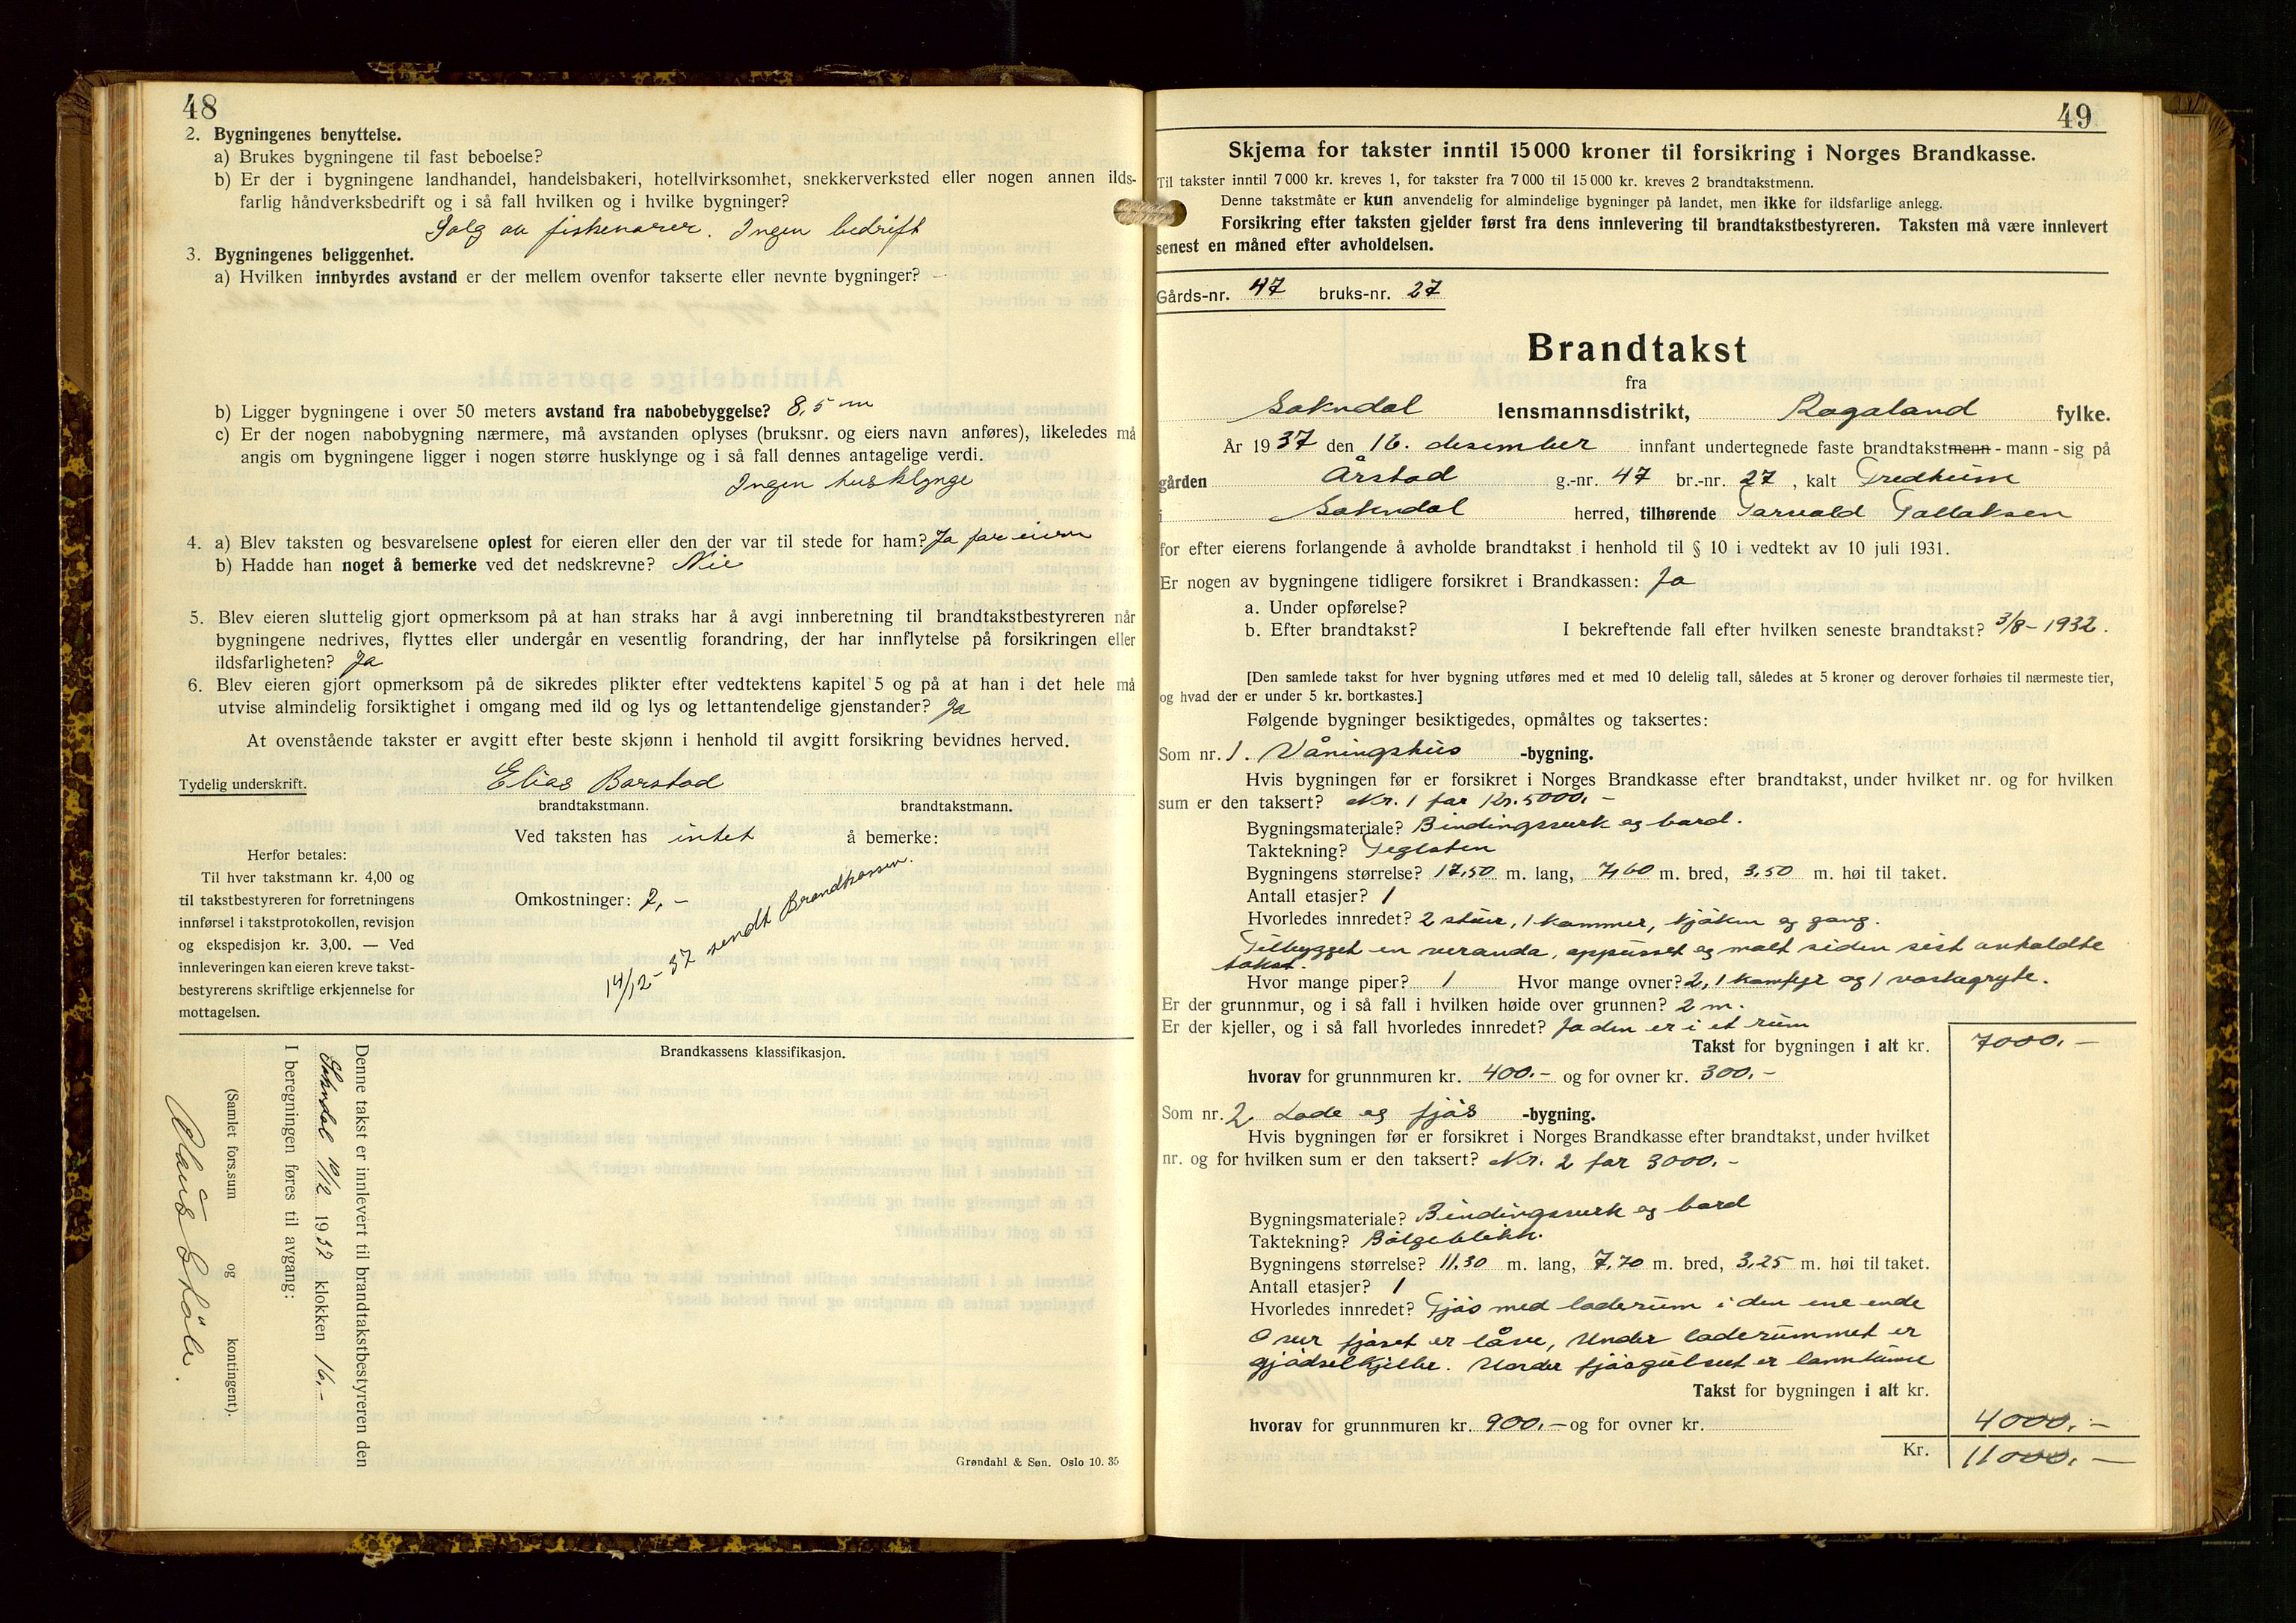 48
2. Bygningenes benyttelse.
a) Brukes bygningene til fast beboelse?
b) Er der i bygningene landhandel, handelsbakeri, hotellvirksomhet, snekkerverksted eller nogen annen ilds-
farlig håndverksbedrift og i så fall hvilken og i hvilke bygninger?
Salg av fiskevarer. Ingen bedrift
3. Bygningenes beliggenhet.
a) Hvilken innbyrdes avstand er der mellem ovenfor takserte eller nevnte bygninger? -
b) Ligger bygningene i over 50 meters avstand fra nabobebyggelse? 8,5 m
c) Er der nogen nabobygning nærmere, må avstanden oplyses (bruksnr. og eiers navn anføres), likeledes må
angis om bygningene ligger i nogen større husklynge og i så fall dennes antagelige verdi.
Ingen husklynge
4. a) Blev taksten og besvarelsene oplest for eieren eller den der var til stede for ham? Ja for eieren
b) Hadde han noget å bemerke ved det nedskrevne? Nei
5. Blev eieren sluttelig gjort opmerksom på at han straks har å avgi innberetning til brandtakstbestyreren når
bygningene nedrives, flyttes eller undergår en vesentlig forandring, der har innflytelse på forsikringen eller
ildsfarligheten? Ja
6. Blev eieren gjort opmerksom på de sikredes plikter efter vedtektens kapitel 5 og på at han i det hele må
utvise almindelig forsiktighet i omgang med ild og lys og lettantendelige gjenstander? Ja
At ovenstående takster er avgitt efter beste skjønn i henhold til avgitt forsikring bevidnes herved.
Tydelig underskrift. Elias Barstad
brandtakstmann. brandtakstmann.
Ved taksten has intet å bemerke:
Herfor betales:
Til hver takstmann kr. 4,00 og
til takstbestyreren for forretningens
innførsel i takstprotokollen, revisjon
og ekspedisjon kr. 3,00. — Ved
innleveringen kan eieren kreve takst-
bestyrerens skriftlige erkjennelse for
mottagelsen.
Omkostninger: 2,-
14/12-37 sendt Brandkassen.
Brandkassens klassifikasjon.
Denne takst er innlevert til brandtakstbestyreren den
Sokndal 10/12 1937 klokken 16,-
I beregningen føres til avgang:
(Samlet fors.sum og kontingent).
Olaus Skåle.
Grøndahl & Søn. Oslo 10. 35
49
Skjema for takster inntil 15 000 kroner til forsikring i Norges Brandkasse.
Til takster inntil 7 000 kr. kreves 1, for takster fra 7 000 til 15 000 kr. kreves 2 brandtakstmenn.
Denne takstmåte er kun anvendelig for almindelige bygninger på landet, men ikke for ildsfarlige anlegg.
Forsikring efter taksten gjelder først fra dens innlevering til brandtakstbestyreren. Taksten må være innlevert
senest en måned efter avholdelsen.
Gårds-nr. 47 bruks-nr. 27
Brandtakst
fra
Sokndal lensmannsdistrikt, Rogaland fylke.
År 1937 den 16. desember innfant undertegnede faste brandtakstmenn - mann - sig på
gården Årstad g.-nr. 47 br.-nr. 27, kalt Fredheim
i Sokndal herred, tilhørende Torvald Tollaksen
for efter eierens forlangende å avholde brandtakst i henhold til § 10 i vedtekt av 10 juli 1931.
Er nogen av bygningene tidligere forsikret i Brandkassen: Ja
a. Under opførelse?
b. Efter brandtakst? I bekreftende fall efter hvilken seneste brandtakst? 3/8-1932.
[Den samlede takst for hver bygning utføres med et med 10 delelig tall, således at 5 kroner og derover forhøies til nærmeste tier,
og hvad der er under 5 kr. bortkastes.]
Følgende bygninger besiktigedes, opmåltes og taksertes:
Som nr. 1. Våningshus -bygning.
Hvis bygningen før er forsikret i Norges Brandkasse efter brandtakst, under hvilket nr. og for hvilken
sum er den taksert? Nr. 1 for Kr. 5000,-
Bygningsmateriale? Bindingsverk og bord.
Taktekning? Teglsten
Bygningens størrelse? 17,50 m. lang, 7,60 m. bred, 3,50 m. høi til taket.
Antall etasjer? 1
Hvorledes innredet? 2 stuer, 1 kammer, kjøken og gang.
Tilbygget en veranda, oppusset og malt siden sist avholdte
takst.
Hvor mange piper? 1 Hvor mange ovner? 2, 1 komfyr og 1 vaskegryte.
Er der grunnmur, og i så fall i hvilken høide over grunnen? 2 m.
Er der kjeller, og i så fall hvorledes innredet? Ja den er i et rum
Takst for bygningen i alt kr. 7000,-
hvorav for grunnmuren kr. 400,- og for ovner kr. 300,-
Som nr. 2 Lade og fjøs -bygning.
Hvis bygningen før er forsikret i Norges Brandkasse efter brandtakst, under hvilket
nr. og for hvilken sum er den taksert? Nr. 2 for 3000,-
Bygningsmateriale? Bindingsverk og bord
Taktekning? Bølgeblikk.
Bygningens størrelse? 11,30 m. lang, 7,70 m. bred, 3,25 m. høi til taket.
Antall etasjer? 1
Hvorledes innredet? Fjøs med laderum i den ene ende
Over fjøset er låve, Under laderummet er
gjødselkjeller. Under fjøsgulvet er
Takst for bygningen i alt kr.
hvorav for grunnmuren kr. 900,- og for ovner kr. 4000,-
Kr. 11000,-